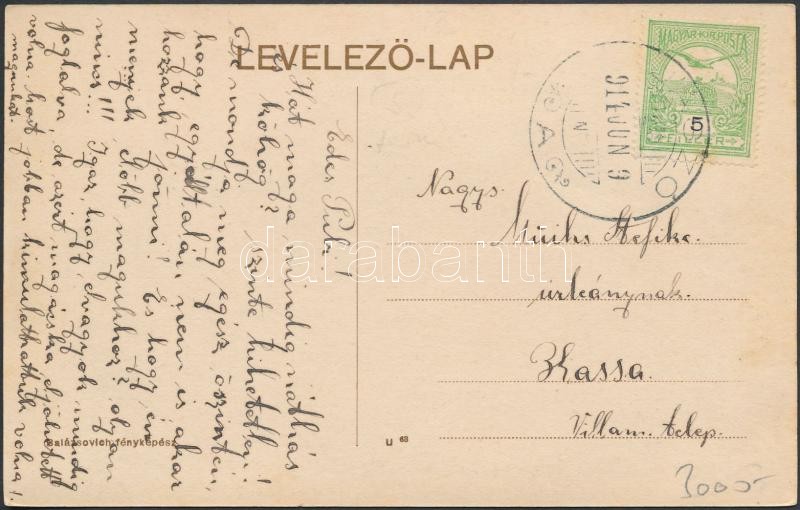 LEVELEZŐ-LAP
MAGYAR·KIR·POSTA
5
FILLÉR
917 JUN 9
darabanth
Édes Pubi!
Hát maga mindig náthás
és köhög? szinte hihetetlen!
De mondja meg egész őszintén,
hogy egyáltalán nem is akar
hozzánk jönni! És hogy én
menjek előbb magukhoz? olyan
nincs!!! Igaz, hogy elvagyok mindig
foglalva, de azért magácska eljöhetett
volna. hát jobban kimulathattuk volna!
magunkat.
Nagys.
Münhs Stefike.
úrleánynak.
Kassa.
Villam. telep.
Balázsovich fényképész
U 68
3000-